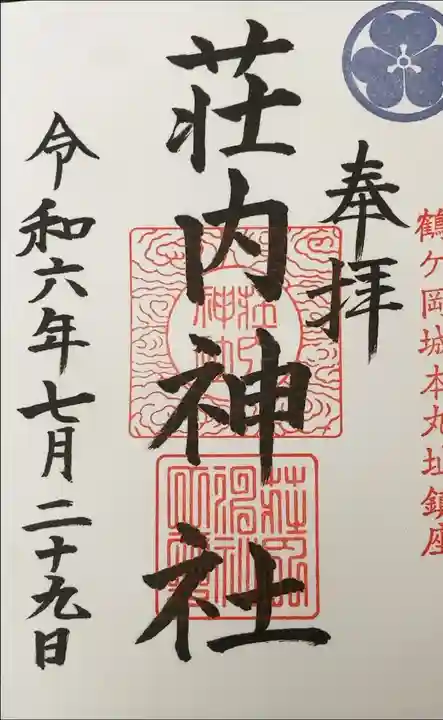 鶴ケ岡城本丸址鎮座
奉拝
荘内神社
令和六年七月二十九日